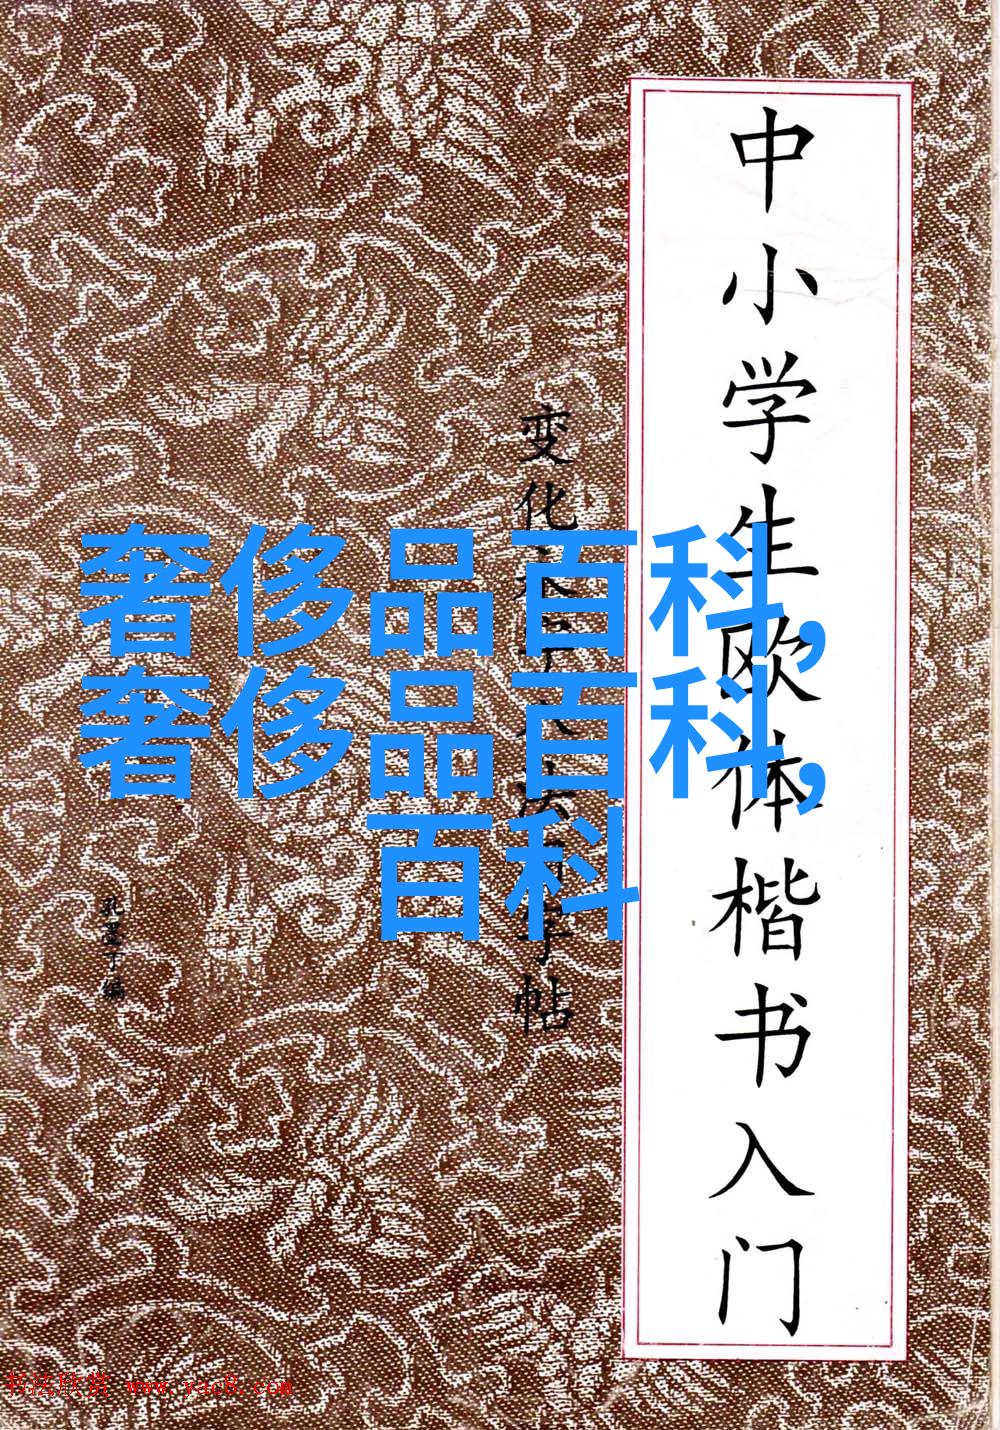 中小学生欧体楷书入门
变化 字帖
孔墨丁编
奢侈品百科,
奢侈品百科,
百科
书法欣赏 www.yac8.com